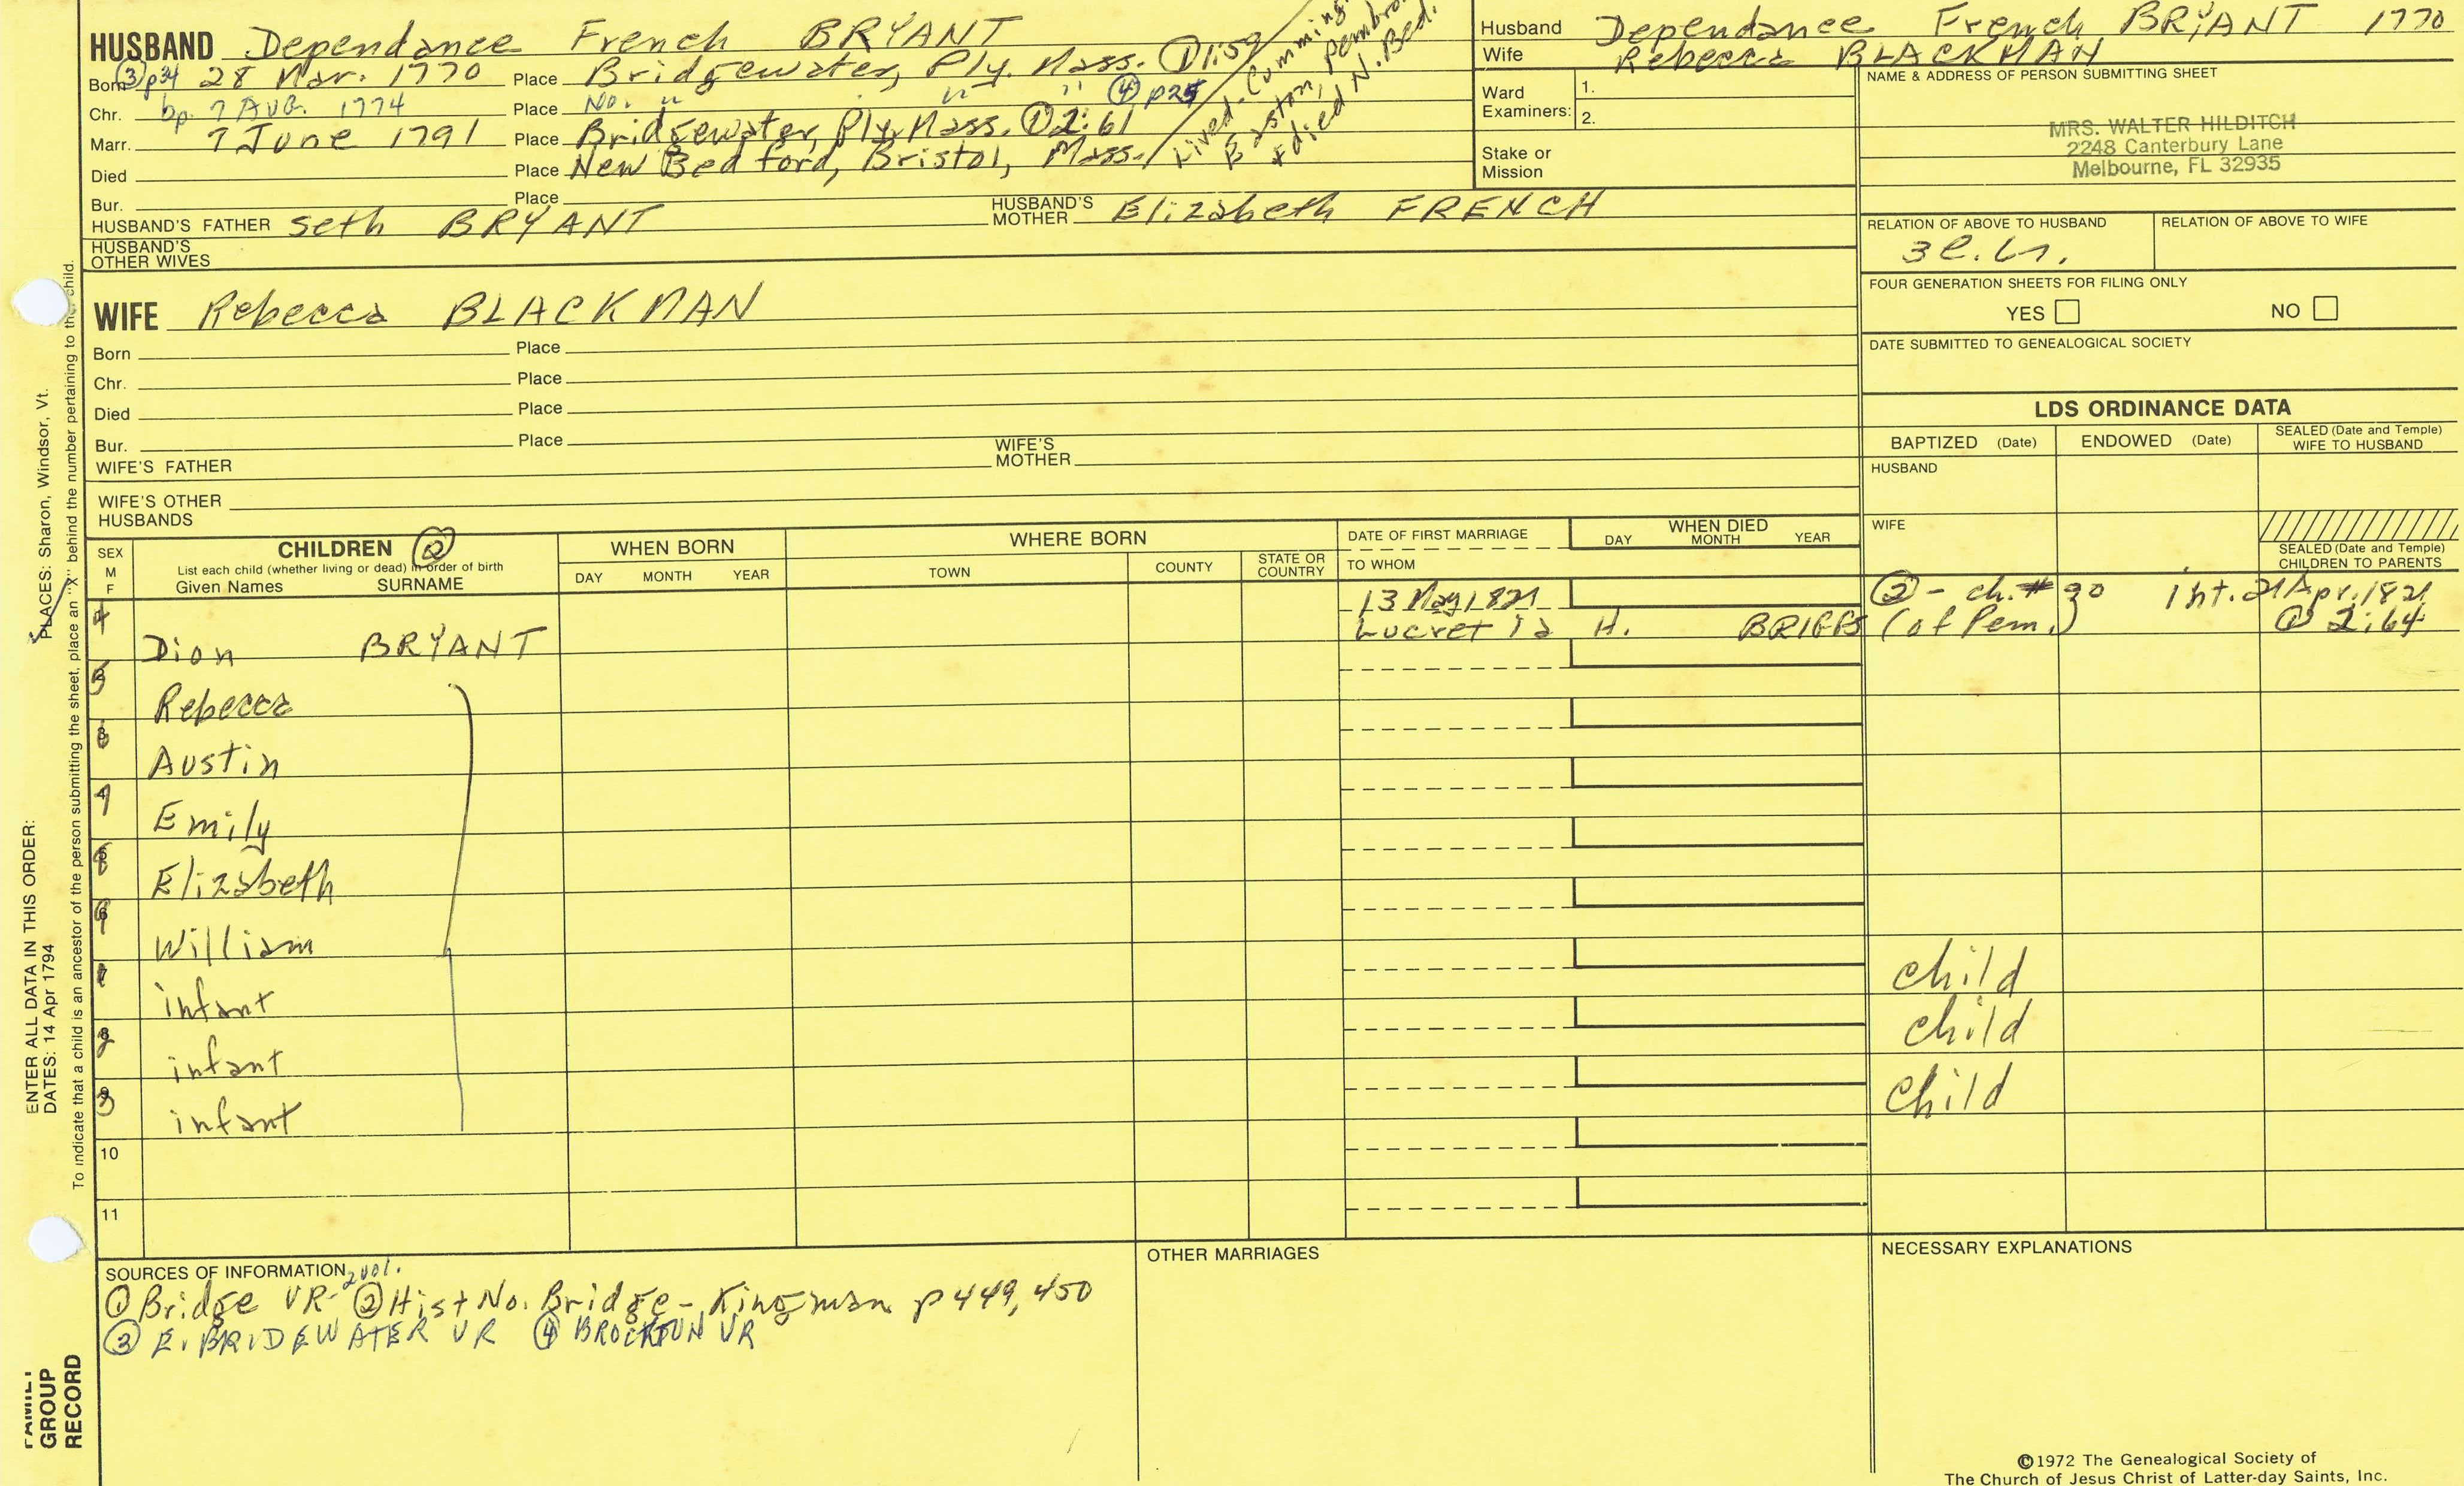 HUSBAND Dependance French BRYANT
Born ③p34 28 Mar. 1770 Place Bridgewater, Ply. Mass. ①1:59
Chr. bp. 7 AUG. 1774 Place No. " " " ④ p25
Marr. 7 June 1791 Place Bridgewater, Ply. Mass. ①2:61
Died Place New Bedford, Bristol, Mass.
Bur. Place
Lived-Cumming
Easton, Pembro
+ died N. Bed.
HUSBAND'S FATHER Seth BRYANT HUSBAND'S MOTHER Elizabeth FRENCH
HUSBAND'S OTHER WIVES
Husband Dependance French BRYANT 1770
Wife Rebecca BLACKMAN
Ward Examiners: 1.
2.
Stake or Mission
NAME & ADDRESS OF PERSON SUBMITTING SHEET
MRS. WALTER HILDITCH
2248 Canterbury Lane
Melbourne, FL 32935
RELATION OF ABOVE TO HUSBAND RELATION OF ABOVE TO WIFE
FOUR GENERATION SHEETS FOR FILING ONLY
YES NO
DATE SUBMITTED TO GENEALOGICAL SOCIETY
WIFE Rebecca BLACKMAN
Born Place
Chr. Place
Died Place
Bur. Place
WIFE'S FATHER WIFE'S MOTHER
WIFE'S OTHER HUSBANDS
LDS ORDINANCE DATA
BAPTIZED (Date) ENDOWED (Date) SEALED (Date and Temple) WIFE TO HUSBAND
HUSBAND
WIFE
SEALED (Date and Temple) CHILDREN TO PARENTS
SEX M F
CHILDREN ②
List each child (whether living or dead) in order of birth
Given Names SURNAME
WHEN BORN
DAY MONTH YEAR
WHERE BORN
TOWN COUNTY STATE OR COUNTRY
DATE OF FIRST MARRIAGE
TO WHOM
WHEN DIED
DAY MONTH YEAR
13 May 1821 ② - ch. # 90 int. 21 Apr. 1821
Dion BRYANT Lucretia H. BRIGGS (of Pem.) ① 2:64
Rebecca
Austin
Emily
Elizabeth
William
infant child
infant child
infant child
10
11
SOURCES OF INFORMATION
① Bridge VR 2 vol. ② Hist No. Bridge - Kingman p 449, 450
③ E. BRIDEWATER VR ④ BROCKTON VR
OTHER MARRIAGES
NECESSARY EXPLANATIONS
©1972 The Genealogical Society of
The Church of Jesus Christ of Latter-day Saints, Inc.
ENTER ALL DATA IN THIS ORDER:
DATES: 14 Apr 1794
PLACES: Sharon, Windsor, Vt.
To indicate that a child is an ancestor of the person submitting the sheet, place an "X" behind the number pertaining to the child.
FAMILY
GROUP
RECORD